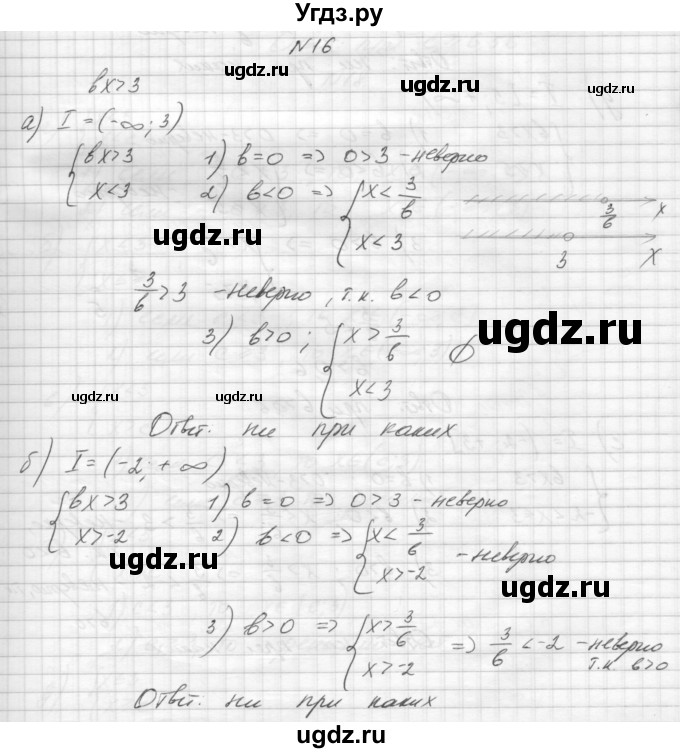 Угдз.ру
N16
ugdz.ru ugdz.ru ugdz.ru
bx>3
а) I = (-∞; 3)
{bx>3 1) b=0 => 0>3 - неверно
x<3 2) b<0 => {x < 3/b
x < 3
3/b x
3 x
ugdz.ru ugdz.ru
3/b > 3 - неверно, т.к. b<0
3) b>0; {x > 3/b ∅
x<3
ugdz.ru ugdz.ru ugdz.ru
Ответ: ни при каких
б) I = (-2; +∞)
{bx>3 1) b=0 => 0>3 - неверно
x>-2 2) b<0 => {x < 3/b - неверно
x>-2
ugdz.ru ugdz.ru ugdz.ru
3) b>0 => {x > 3/b => 3/b < -2 - неверно
x>-2 т.к b>0
Ответ: ни при каких
ugdz.ru ugdz.ru
ugdz.ru